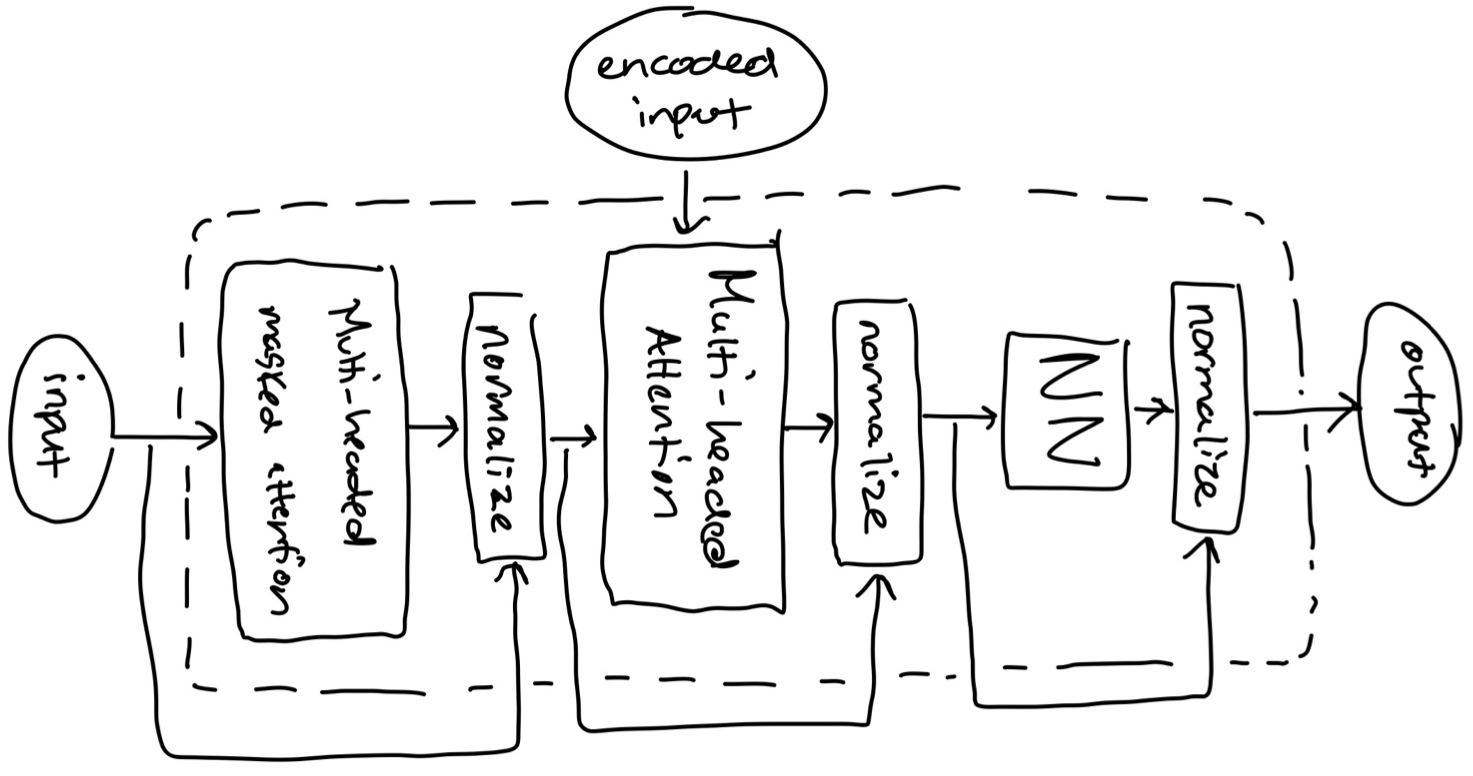 encoded
input
input
Multi-headed
masked attention
normalize
Multi-headed
Attention
normalize
NN
normalize
output